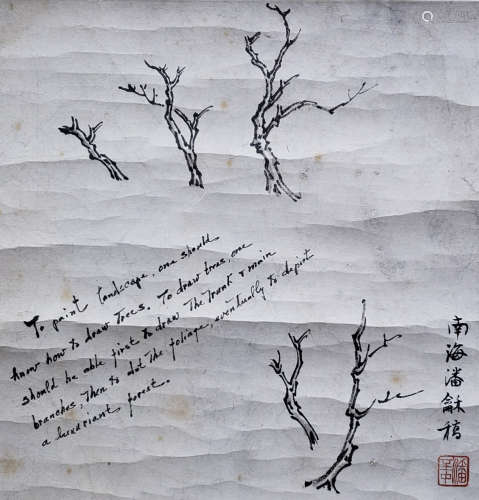 To paint landscape, one should
know how to draw trees. To draw trees, one
should be able first to draw the trunk & main
branches, then to dot the foliage, eventually to depict
a luxuriant forest.
南海潘龢稿